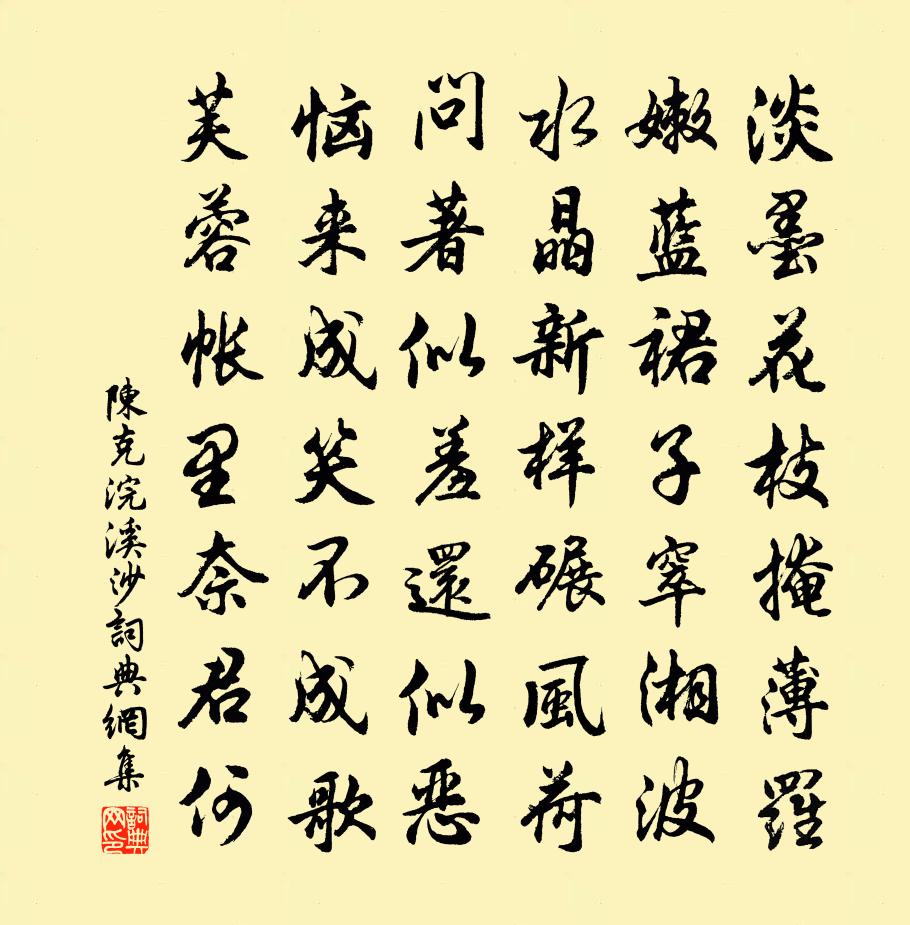 淡墨花枝掩薄羅
嫩藍裙子窣湘波
水晶新样碾風荷
問著似羞還似恶
恼来成笑不成歌
芙蓉帳里奈君何
陳克浣溪沙詞典網集
詞典网印